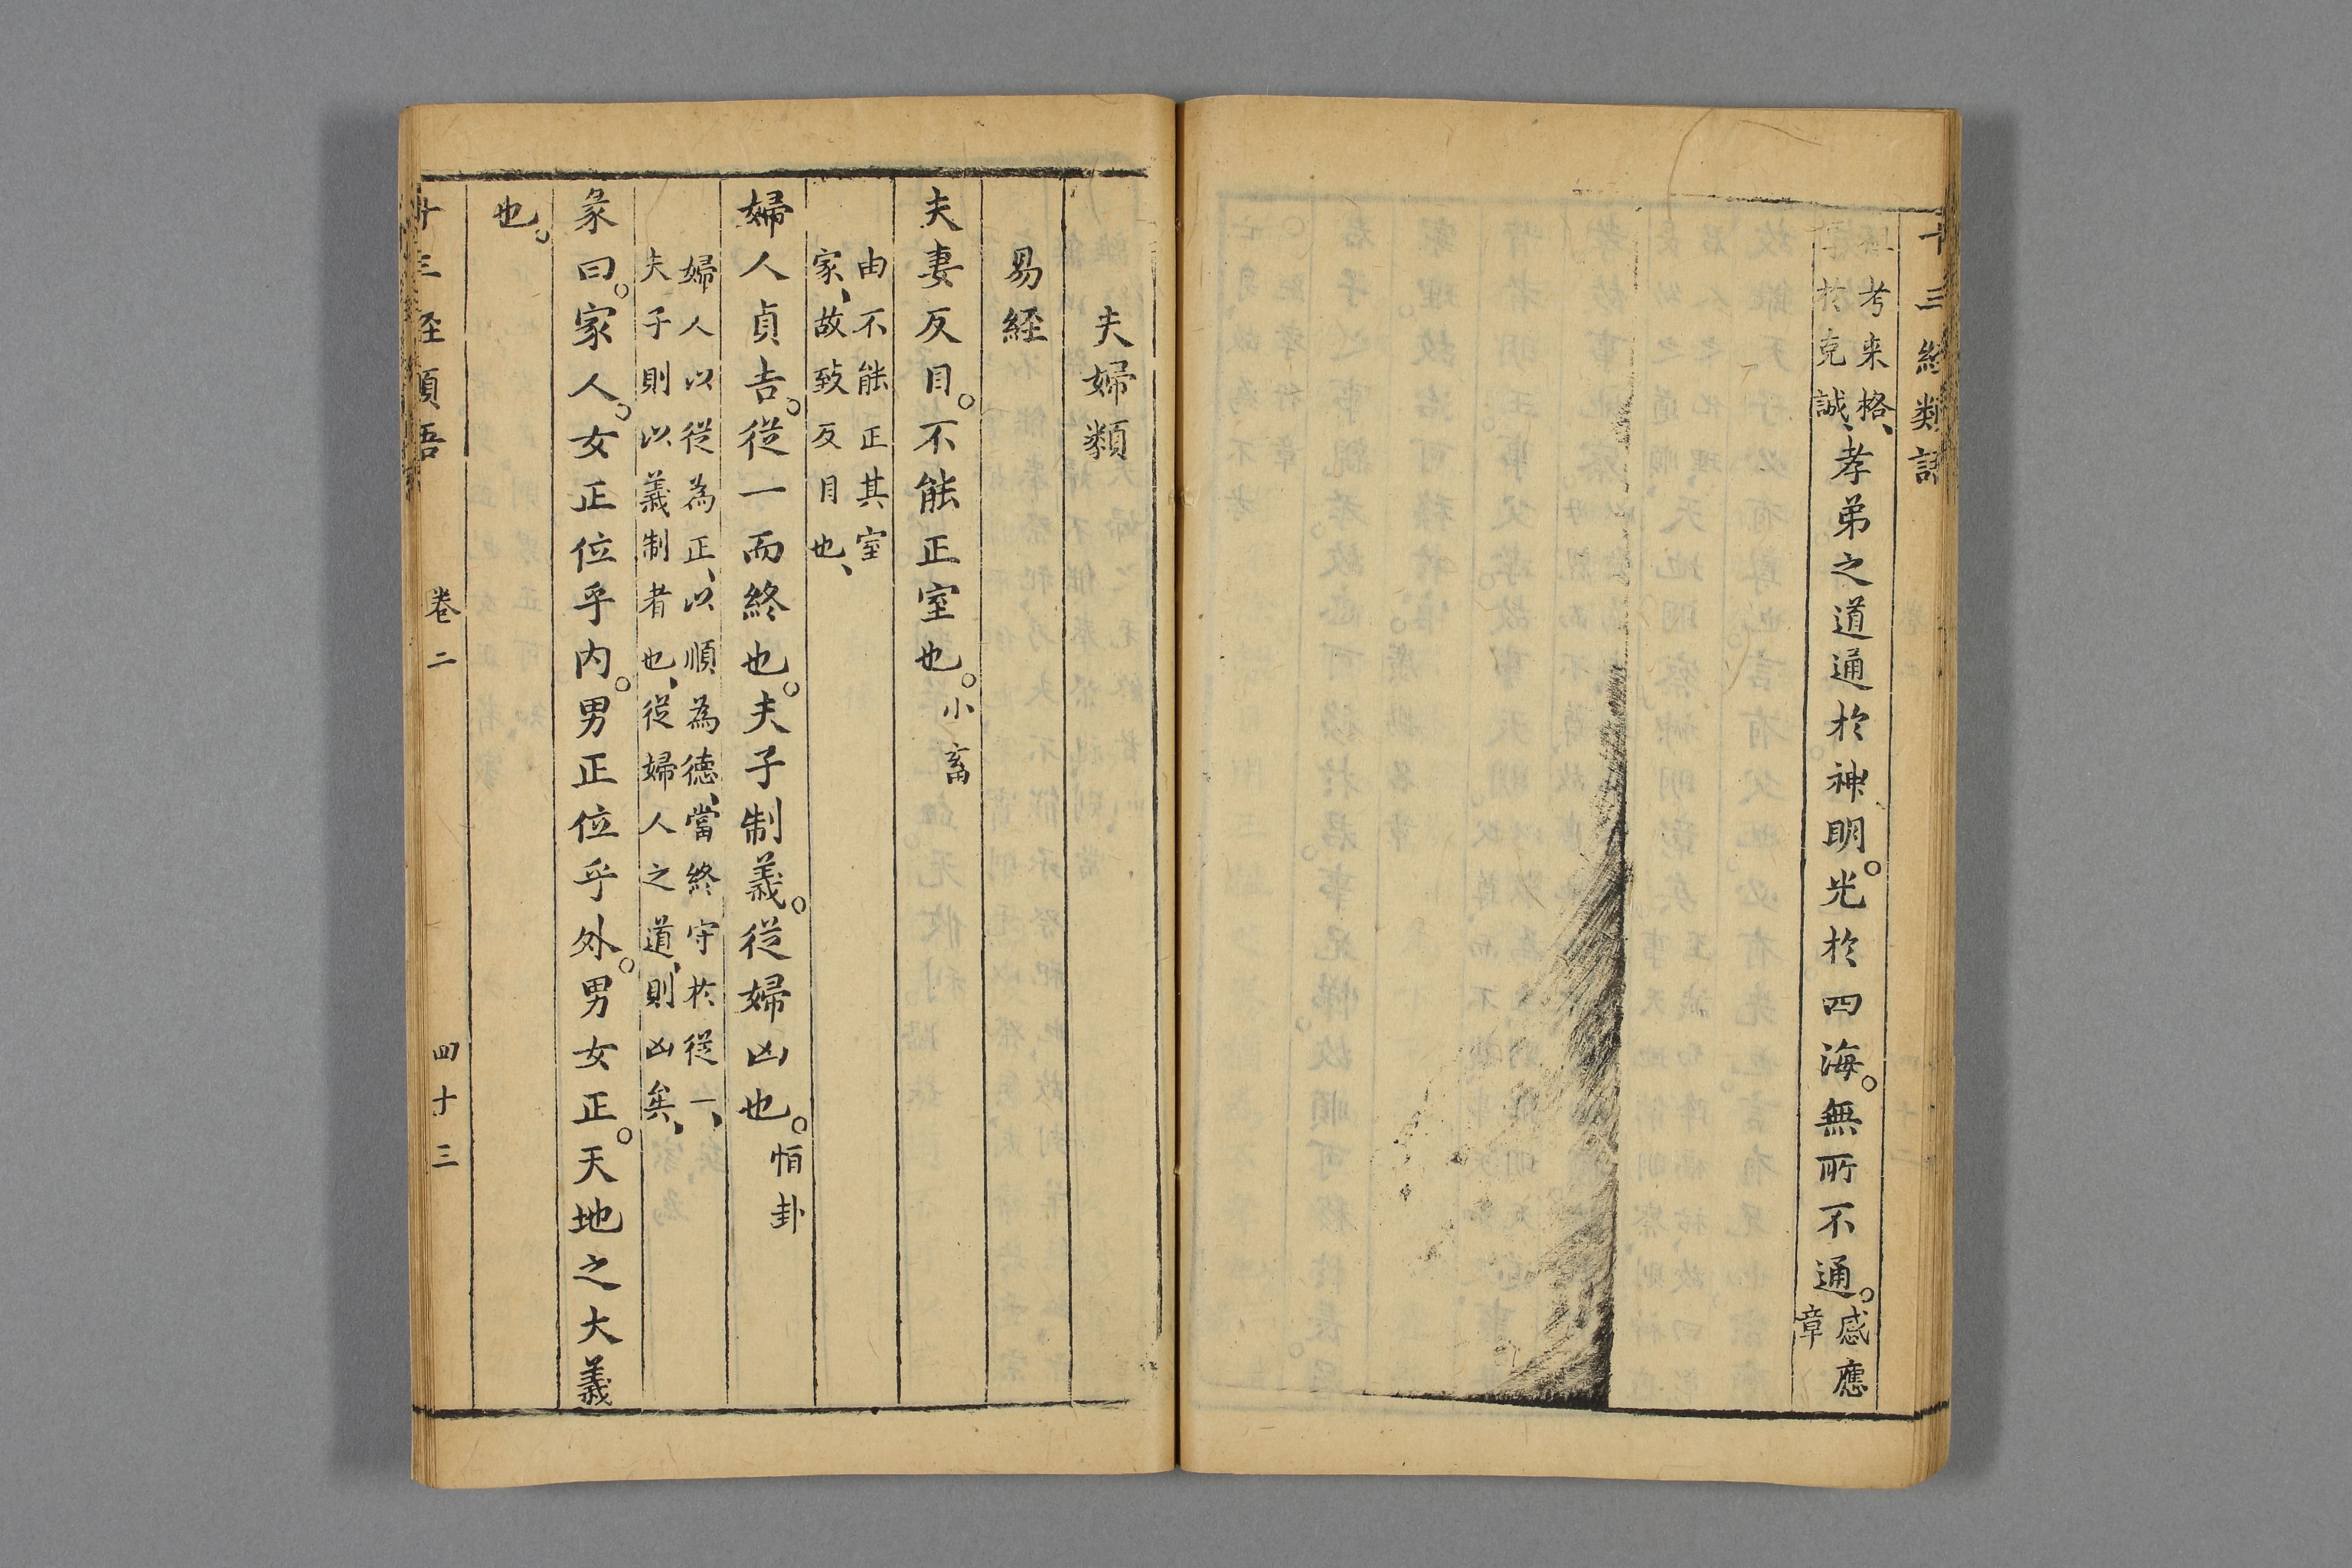 十三經類語
祖考来格、
享於克誠、
孝弟之道通於神明。光於四海。無所不通。感應章
夫婦類
易經
夫妻反目。不能正室也。小畜
由不能正其室
家、故致反目也、
婦人貞吉。從一而終也。夫子制義。從婦凶也。恒卦
婦人以從為正、以順為德、當終守於從一、
夫子則以義制者也、從婦人之道、則凶矣、
彖曰。家人。女正位乎內。男正位乎外。男女正。天地之大義
也。
十三經類語 卷二 四十三